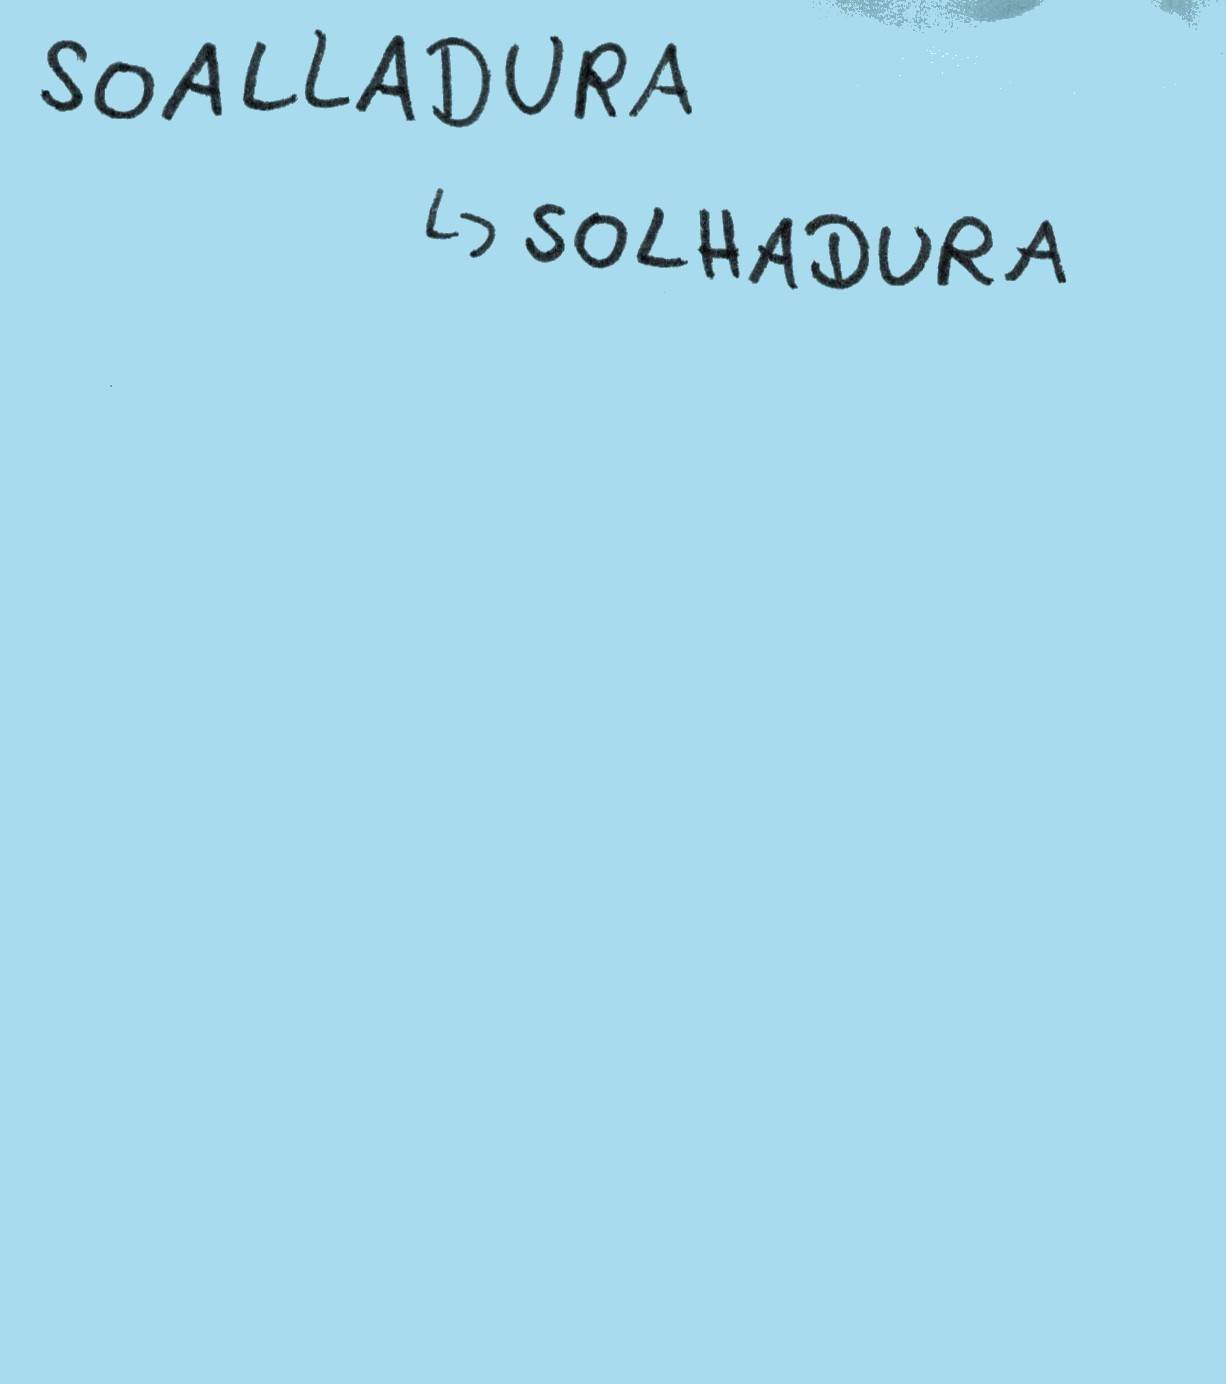 SOALLADURA
↳ SOLHADURA